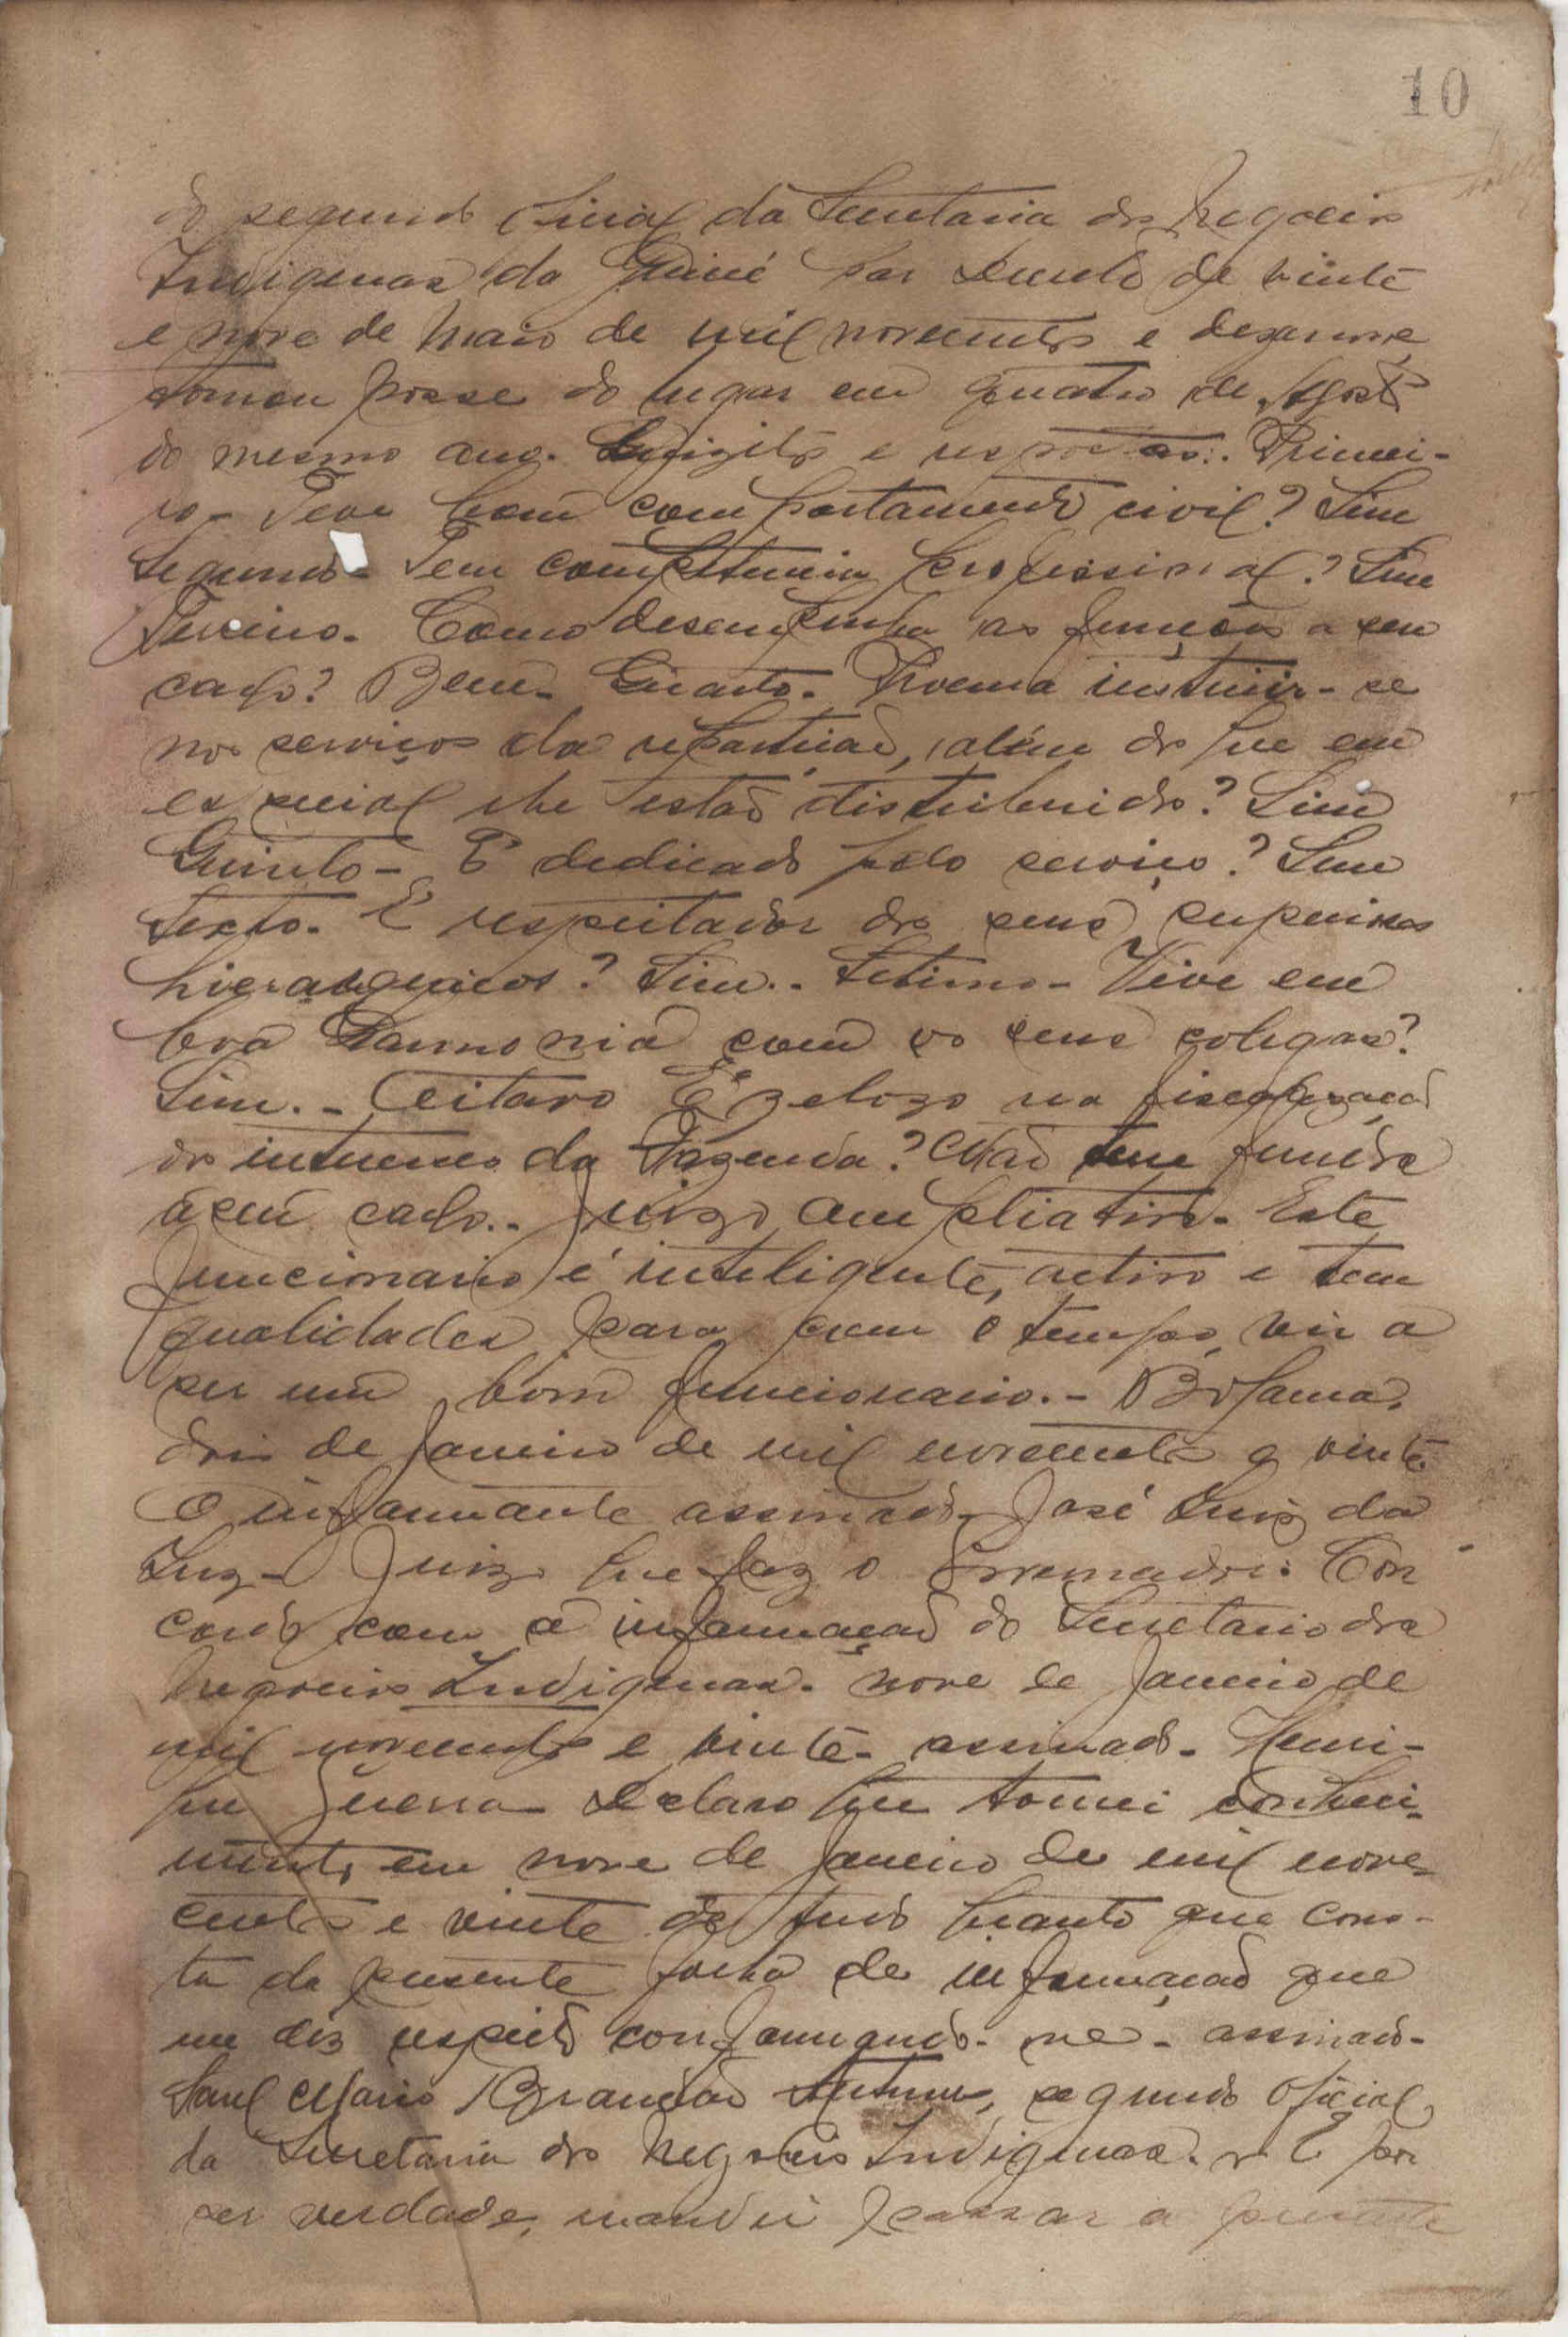 10
do segundo oficial da Secretaria dos Negocios
Indigenas da Guiné por decreto de vinte
e nove de Maio de mil novecentos e dezanove
tomou posse do lugar em quatro de Agosto
do mesmo ano. Quizitos e respostas:. Primei-
ro - Tem bom comportamento civil? Sim
Segundo - Tem competencia profissional? Sim
Terceiro. Como desempenha as funções a seu
cargo? Bem - Quarto. Procura instruir-se
nos serviços da repartição, além dos que em
especial lhe estão distribuidos? Sim
Quinto - É dedicado pelo serviço? Sim
Sexto. É respeitador dos seus superiores
hierarquicos? Sim.. Setimo - Vive em
boa harmonia com os seus colegas?
Sim. - Oitavo É zelozo na fiscalização
dos interesses da Fazenda? Não tem fundos
a seu cargo.. Juizo ampliativo. Este
funcionario é inteligente, activo e tem
qualidades para com o tempo, vir a
ser um bom funcionario. - Bolama,
dois de Janeiro de mil novecentos e vinte
O informante assinado, José Luiz da
Luz - Juizo que faz o Governador: Con
cordo com a informação do Secretario dos
Negocios Indigenas. nove de Janeiro de
mil novecentos e vinte - assinado - Henri-
que Guerra - Declaro que tomei conheci-
mento em nove de Janeiro de mil nove-
centos e vinte de tudo quanto que cons-
ta da presente folha de informação que
me diz respeito conformando-me - assinado -
Saul Mario Brandão Antunes, segundo oficial
da Secretaria dos Negocios Indigenas. E por
ser verdade, mandei passar a presente